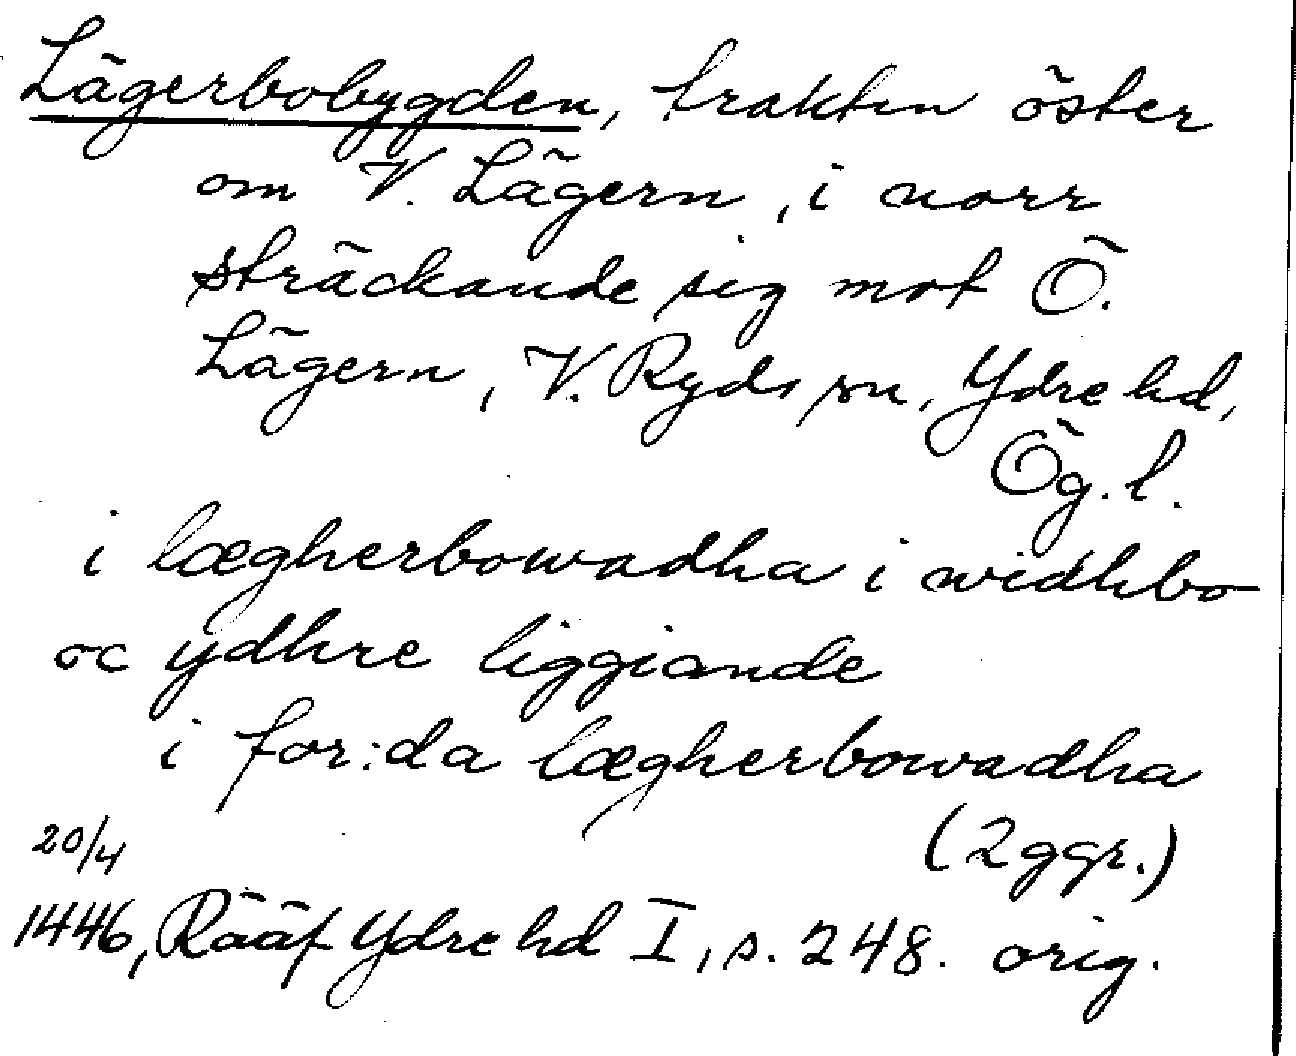 Lägerbobygden, trakten öster
om V. Lägern, i norr
sträckande sig mot Ö.
Lägern, V. Ryds sn, Ydre hd,
Ög. l.
i lægherbowadha i widhbo
oc ydhre liggiande
i for:da lægherbowadha
(2 ggr.)
20/4
1446, Rääf Ydre hd I, s. 248. orig.